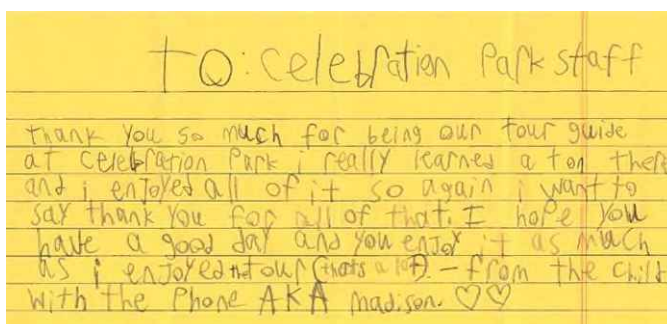 to: celebration park staff
thank you so much for being our tour guide
at celebration Park i really learned a ton there
and i enjoyed all of it so again i want to
say thank you for all of that. I hope you
have a good day and you enjoy it as much
as i enjoyed the tour (thats a lot). - from the child
with the phone AKA madison. ♡♡